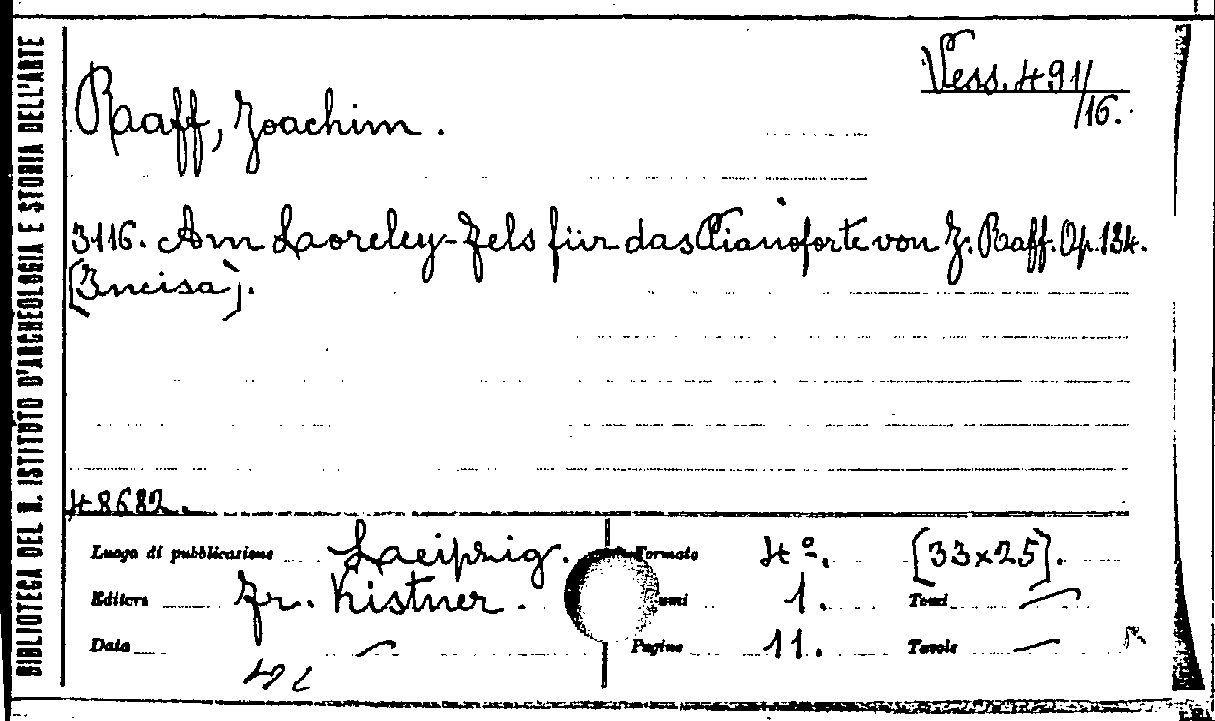 BIBLIOTECA DEL R. ISTITUTO D'ARCHEOLOGIA E STORIA DELL'ARTE
Vess. 491/16.
Raff, Joachim.
3116. Am Loreley-Fels für das Pianoforte von J. Raff. Op. 134.
[Incisa].
48682.
Luogo di pubblicazione Laeipzig. Formato 4º. [33x25].
Editore Fr. Kistner. umi 1. Tomi —
Data — Pagine 11. Tavole —